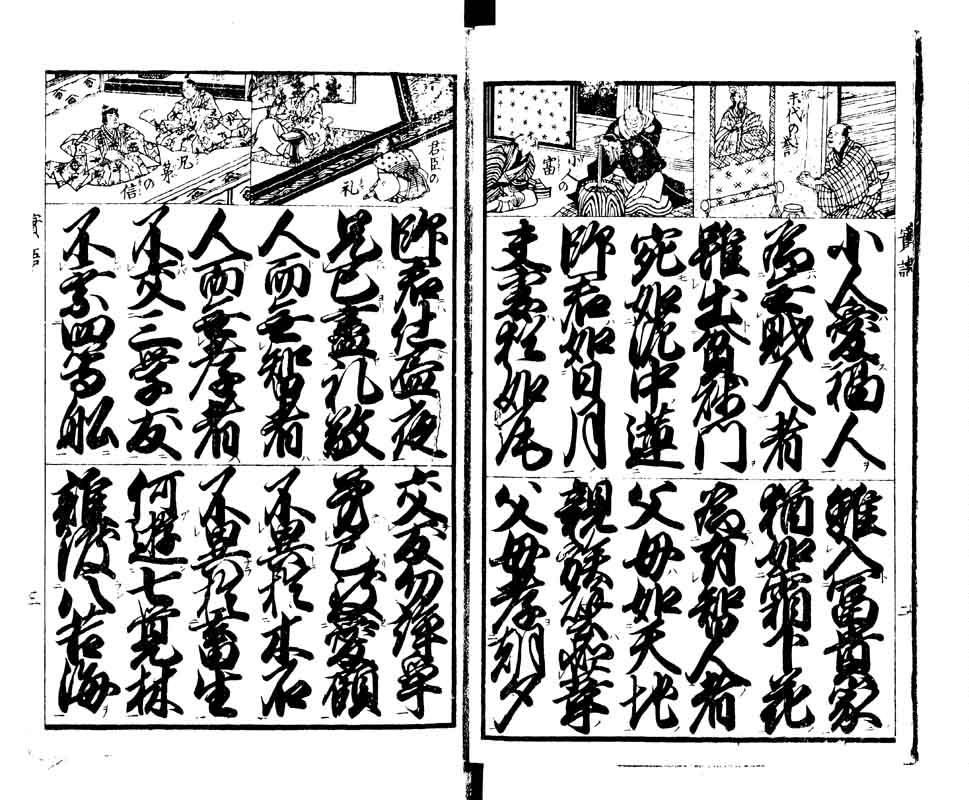 末代の誉
小人の富
小人愛福人
雖入冨貴家
為無財人者
猶如霜下花
雖出貧賤門
為有智人者
宛如泥中蓮
父母如天地
師君如日月
親族譬如葦
夫妻猶如瓦
父母孝朝夕
君臣の礼
兄弟の信
師君仕昼夜
交友勿諍事
兄己盡礼敬
弟己致愛顧
人而無智者
不異於木石
人而無孝者
不異於畜生
不交三学友
何遊七覚林
不乗四等船
誰渡八苦海
實語
三